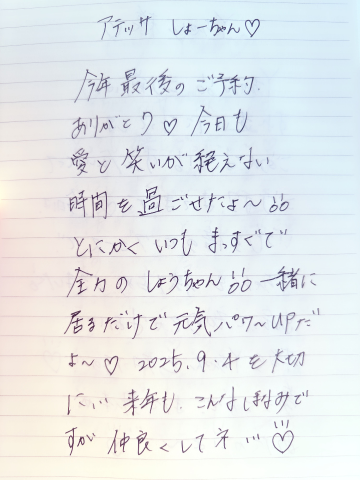 アテッサ しょーちゃん♡
今年最後のご予約、
ありがとう♡ 今日も
愛と笑いが絶えない
時間を過ごせたよ〜
とにかく いつも まっすぐで
全力の しょうちゃん 一緒に
居るだけで 元気パワ〜UPだ
よ〜♡ 2025.9.4を大切
に… 来年も、こんな しほみで
すが 仲良くしてネ…♡